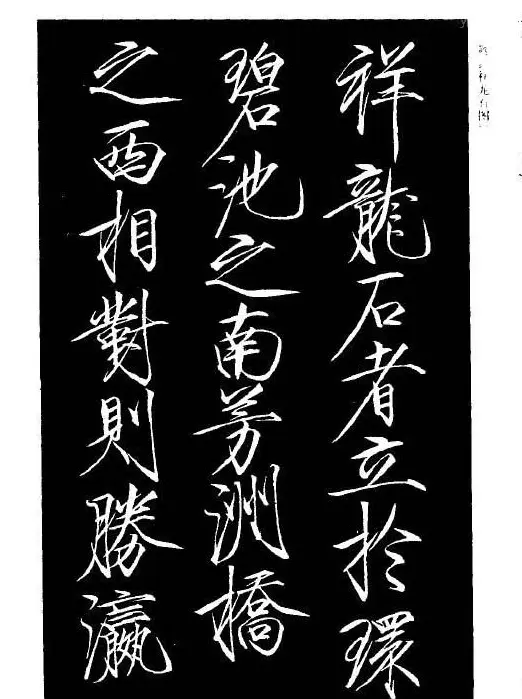 祥龍石者立於環
碧池之南芳洲橋
之西相對則勝瀛